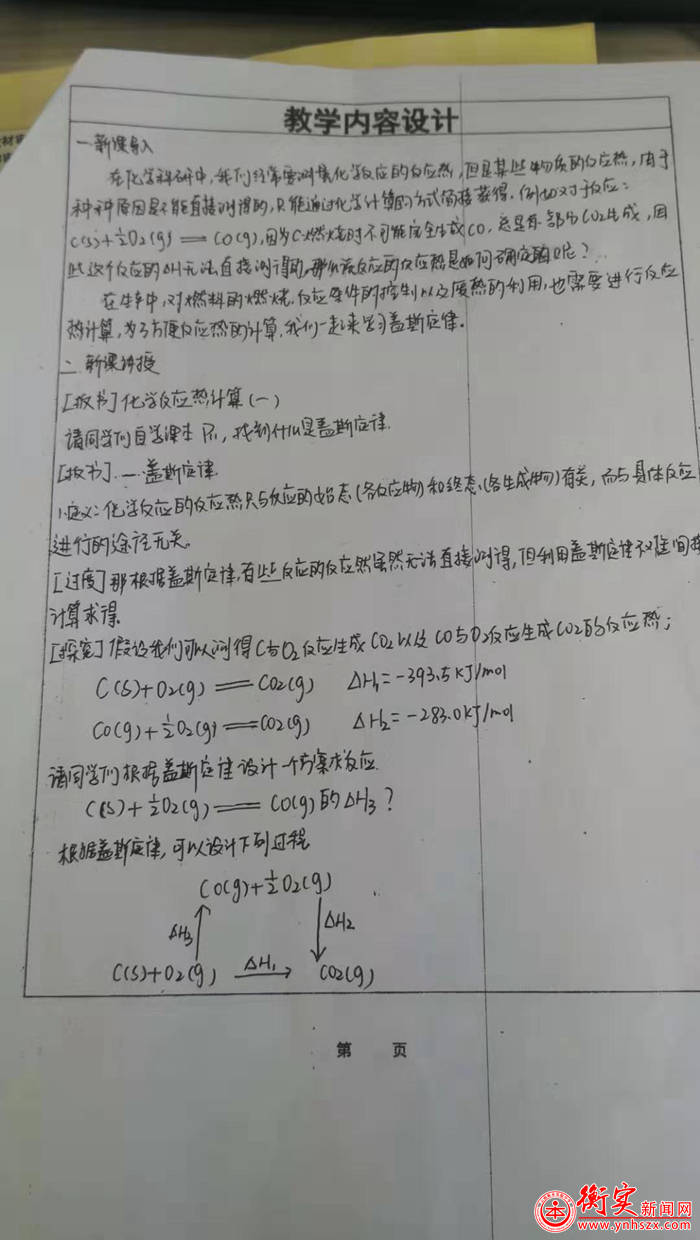 教学内容设计
一.新课导入
在化学科研中,我们经常要测量化学反应的反应热,但是某些物质的反应热,由于
种种原因是不能直接测得的,只能通过化学计算的方式间接获得.例如对于反应:
C(s)+½O₂(g)══CO(g),因为C燃烧时不可能完全生成CO,总是有部分CO₂生成,因
此这个反应的ΔH无法直接测得的,那么该反应的反应热是如何确定的呢?
在生产中,对燃料的燃烧、反应条件的控制以及废热的利用,也需要进行反应
热计算,为了方便反应热的计算,我们一起来学习盖斯定律.
二.新课讲授
[板书]化学反应热计算(一)
请同学们自学课本 ,找到什么是盖斯定律.
[板书].一.盖斯定律.
1.定义:化学反应的反应热只与反应的始态(各反应物)和终态(各生成物)有关,而与具体反应
进行的途径无关.
[过度]那根据盖斯定律,有些反应的反应热虽然无法直接测得,但利用盖斯定律不难间接
计算求得.
[探究]假设我们可以测得C与O₂反应生成CO₂以及CO与O₂反应生成CO₂的反应热;
C(s)+O₂(g)══CO₂(g) ΔH₁=-393.5kJ/mol
CO(g)+½O₂(g)══CO₂(g) ΔH₂=-283.0kJ/mol
请同学们根据盖斯定律设计一个方案求反应
C(s)+½O₂(g)══CO(g)的ΔH₃?
根据盖斯定律,可以设计下列过程
CO(g)+½O₂(g)
ΔH₃ ΔH₂
C(s)+O₂(g) ΔH₁ CO₂(g)
第 页
衡实新闻网
www.ynhszx.com